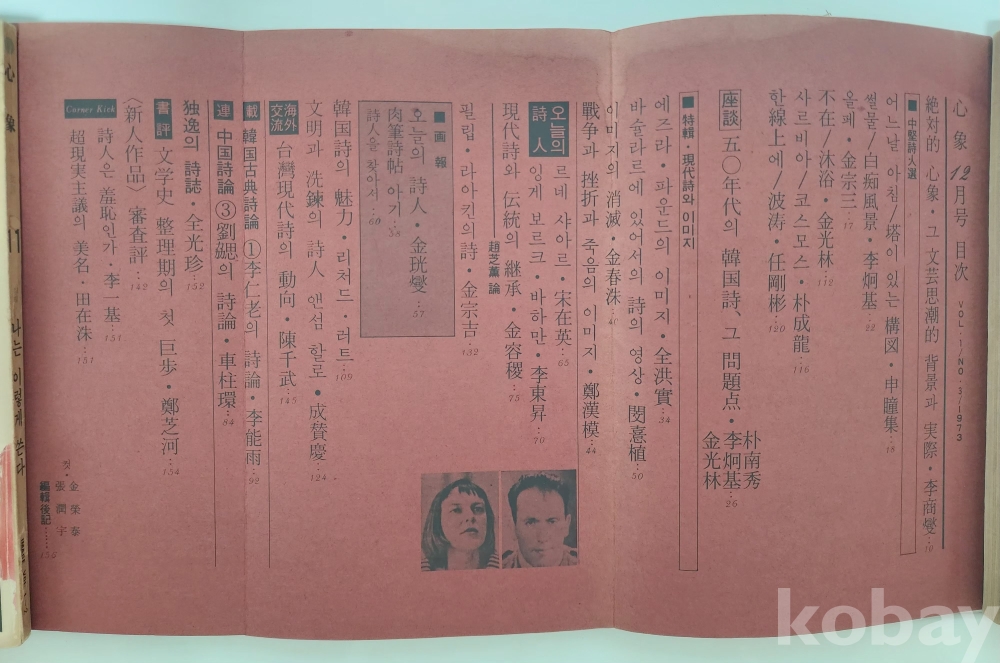 心象 12月号 目次 VOL·1/NO·3/1973
絶対的 心象·그 文芸思潮的 背景과 実際·李商燮…10
■中堅詩人選
어느날 아침/塔이 있는 構図·申瞳集…18
썰물/白痴風景·李炯基…22
올페·金宗三…17
不在/沐浴·金光林…112
사르비아/코스모스·朴成龍…116
한線上에/波涛·任剛彬…120
座談 五〇年代의 韓国詩、그 問題点·朴南秀 李炯基 金光林…26
■特輯·現代詩와 이미지
에즈라·파운드의 이미지·全洪實…34
바슐라르에 있어서의 詩의 영상·閔憙植…50
이미지의 消滅·金春洙…40
戰争과 挫折과 죽음의 이미지·鄭漢模…44
오늘의 詩人
르네 샤아르·宋在英…65
잉게 보르크·바하만·李東昇…70
現代詩와 伝統의 継承·金容稷…75
趙芝薰 論
필립·라아킨의 詩·金宗吉…132
■画報
오늘의 詩人·金珖燮…57
肉筆詩帖 아기…58
詩人을 찾아서…60
韓国詩의 魅力·리처드·러트…109
文明과 洗鍊의 詩人 앤섬 할로·成賛慶…124
海外交流 台灣現代詩의 動向·陳千武…145
連載
韓国古典詩論 ①李仁老의 詩論·李能雨…92
中国詩論 ③劉勰의 詩論·車柱環…84
独逸의 詩誌·全光珍…152
書評 文学史 整理期의 첫 巨歩·鄭芝河…134
〈新人作品〉 審査評…142
Corner Kick
詩人은 羞恥인가·李一基…151
超現実主義의 美名·田在洙…151
컷·金榮泰 張潤宇
編輯後記……156
心象
11
나는 이렇게 쓴다
kobay